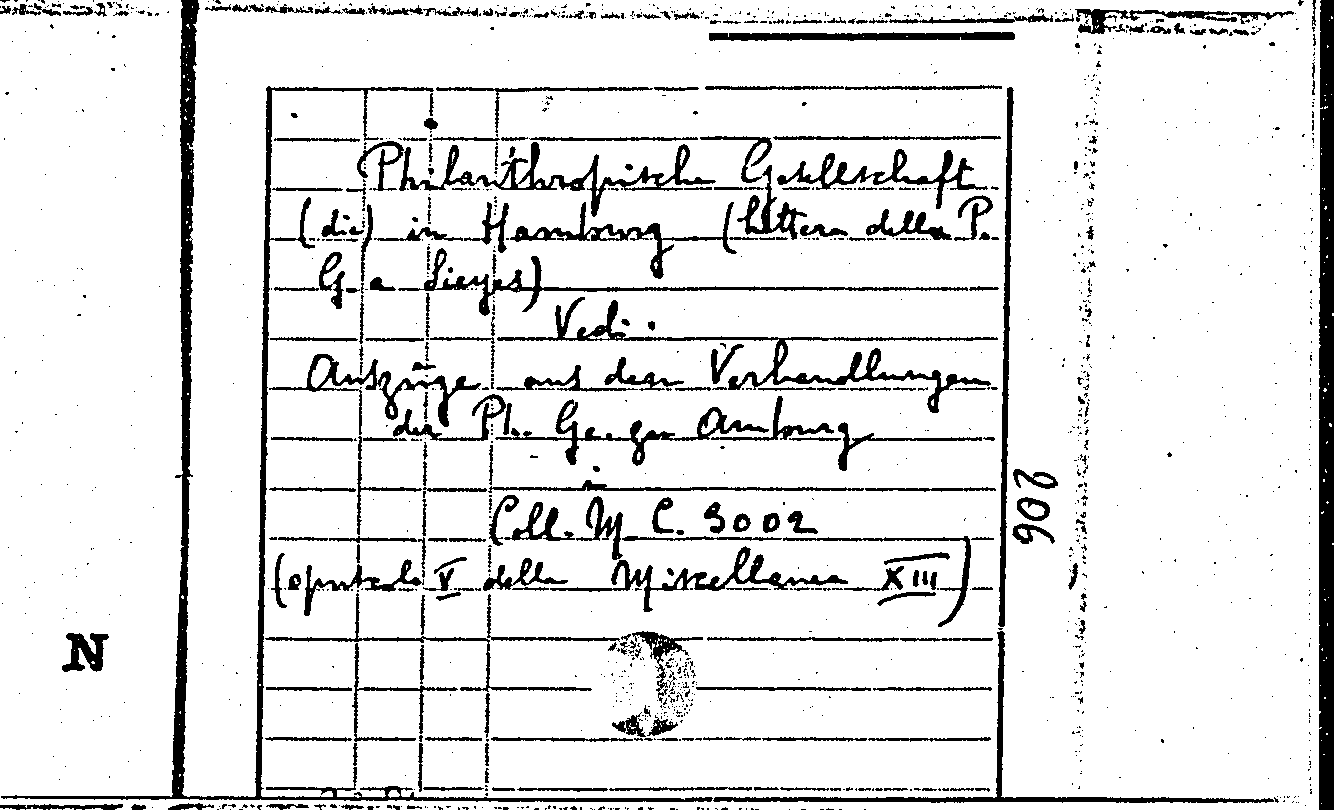 Philanthropische Gesellschaft
(die) in Hamburg (lettera della P.
G. a Sieyes)
Vedi:
Auszüge aus den Verhandlungen
der Ph. Ge. zu Amburg
in
Coll. M. C. 3002
(opuscolo V della Miscellanea XIII)
206
N